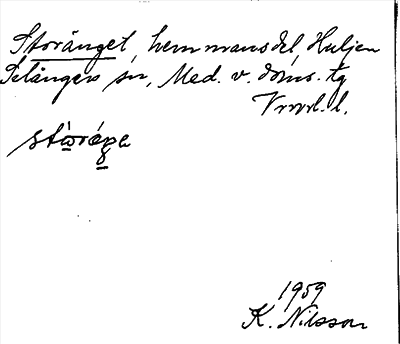 Storänget, hemmansdel, Huljen
Selångers sn, Med. v. doms. tg
Vrnrl. l.
stòrǻŋe
1959
K. Nilsson